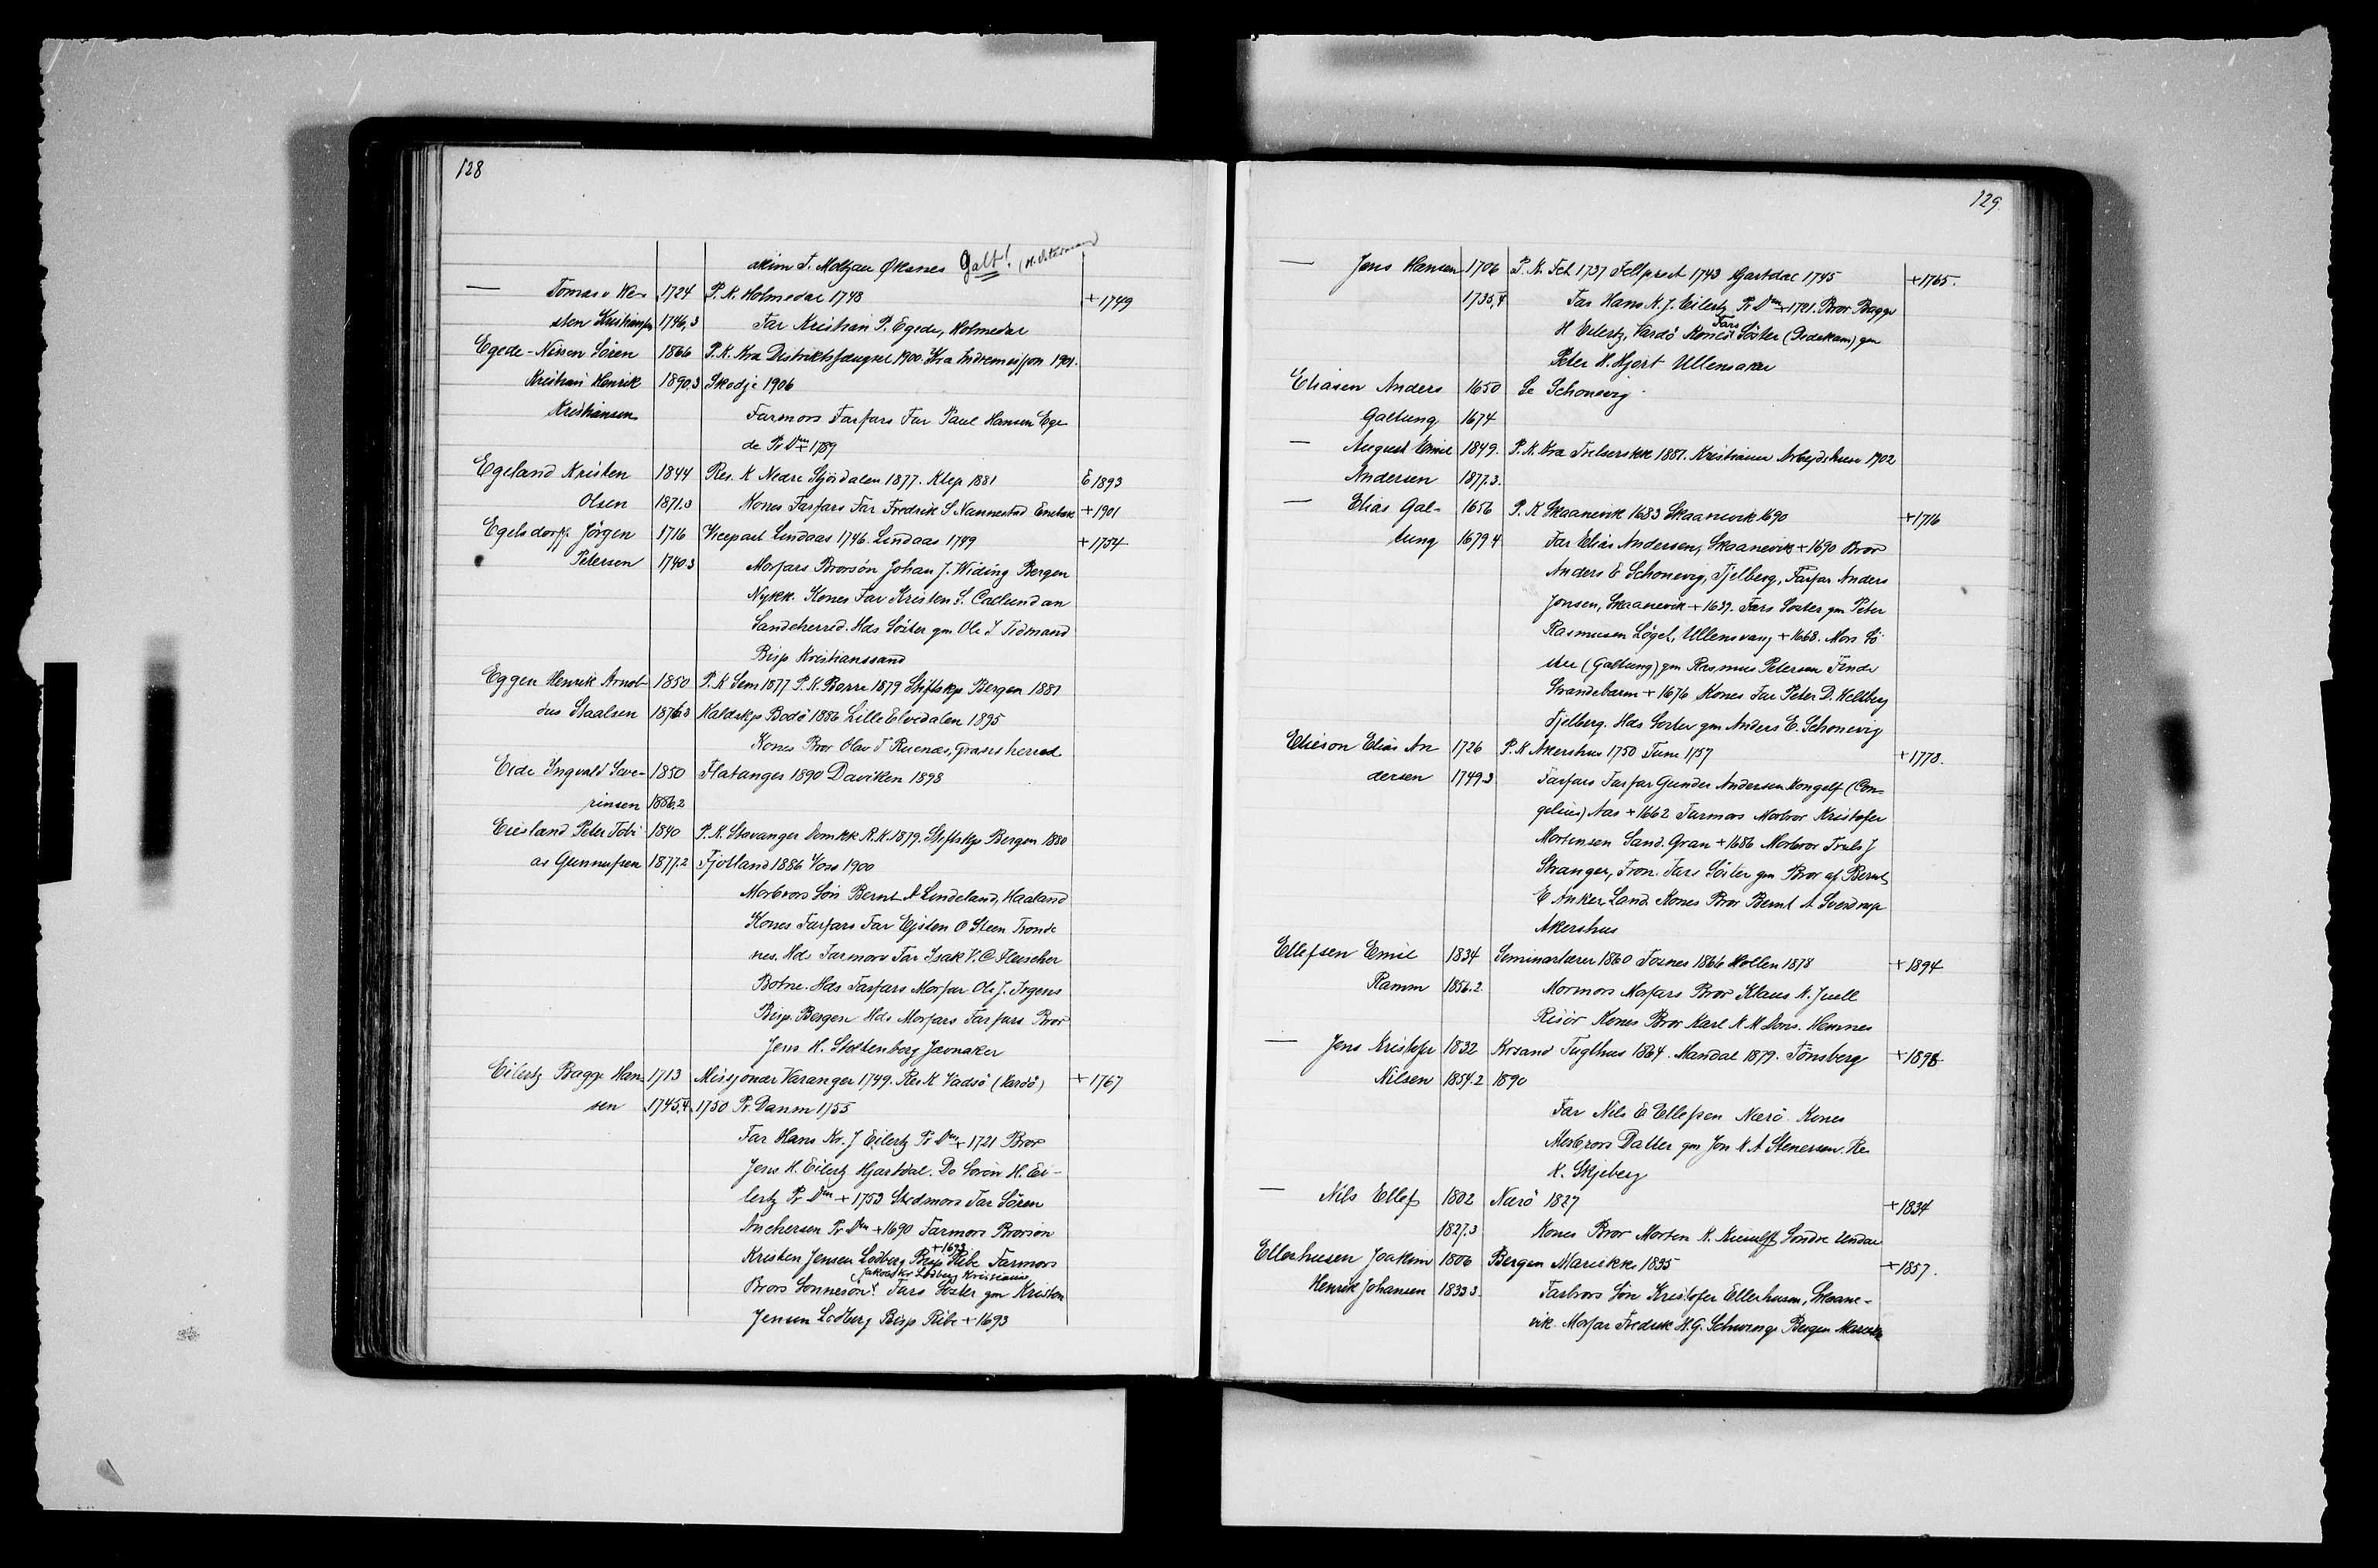 128
akim T. Moltzau Øksnes Galt!
— Tomas v We- 1724 P. K. Holmedal 1743 + 1749
sten Kristiansen 1746,3 Far Kristian P. Egede, Holmedal
Egede-Nissen Sören 1866 P. K. Kra Distriktsfængsel 1900. Kra Indremisjon 1901.
Kristian Henrik 1890.3 Skodje 1906
Kristiansen Farmors Farfars Far Paul Hansen Ege
de Pr Dm + 1789
Egeland Kristen 1844 Res. K Nedre Stjördalen 1877. Klep 1881 E 1893
Olsen 1871.3 Kones Farfars Far Fredrik S Nannestad Enebak + 1901
Egelsdorff Jörgen 1716 Vicepast Lindaas 1746. Lindaas 1749 + 1754
Petersen 1740.3 Morfars Brorsön Johan J. Widing Bergen
Nykk. Kones Far Kristen S. Callundan
Sandeherred. Hds Söster gm Ole T Tidmand
Bisp Kristianssand
Eggen Henrik Arnol- 1850 P. K Sem 1877 P. K. Borre 1879 Stiftskp Bergen 1881
dus Staalsen 1876.3 Kaldskp Bodö 1886 Lille Elvedalen 1895
Kones Bror Olav T Ruenæs, Gransherred
Eide Ingvald Seve- 1850 Flatanger 1890 Daviken 1898
rinsen 1886.2
Eiesland Peter Tobi 1840 P. K. Stavanger Domkk R. K. 1879. Stiftskp Bergen 1880
as Gunnufsen 1877.2 Fjotland 1886 Voss 1900
Morbrors Sön Bernt A Lindeland, Haaland
Kones Farfars Far Ejsten O Steen Tronde
nes. Hds Farmors Far Isak V. C Fleischer
Botne. Hds Farfars Morfar Ole J. Irgens
Bisp. Bergen Hds Morfars Farfars Bror
Jens H. Stoltenberg Jævnaker
Eilertz Bagge Han- 1713 Missjonær Varanger 1749. Res K Vadsö (Vardö) + 1767
sen 1745,4 1750 Pr. Danm 1755
Far Hans Kr. J Eilertz Pr Dm + 1721 Bror
Jens H. Eilertz Hjartdal. Do Sören H. Ei-
lertz Pr Dm + 1753 Stedmors Far Sören
Anchersen Pr Dm + 1690 Farmors Brorsön
+ 1693
Kristen Jensen Lodberg Bisp Ribe Farmors
Jakob Kr Lodberg Kristiania
Brors Sönnesön Fars Söster gm Kristen
Jensen Lodberg Bisp Ribe + 1693
129
— Jens Hansen 1706 P. K. Fet 1737 Feltprest 1743 Hjartdal 1745 + 1765.
1735,4 Far Hans K. J. Eilertz Pr Dm + 1721. Bror Bagge
Fars
H Eilertz, Vardö Kones Söster (Dedekam) gm
Peter H. Hjort Ullensaker
Eliasen Anders 1650 Se Schonevig
Galtung 1674
— August Emil 1849. P. K. Kra Frelserskk 1881. Kristiania Arbejdshus 1902
Andersen 1877.3.
— Elias Gal- 1656 P. K Skaanevik 1683 Skaanevik 1690 + 1716
tung 1679.4 Far Elias Andersen, Skaanevik + 1690 Bror
Anders E Schonevig, Fjelberg, Farfar Anders
Jonsen, Skaanevik + 1639. Fars Söster gm Peter
Rasmusen Lögel, Ullensvang + 1668. Mors Sö
ster (Galtung) gm Rasmus Petersen Finde
Strandebarm + 1676 Kones Far Peter D. Heltberg
Fjelberg. Hds Söster gm Anders E. Schonevig
Elieson Elias An 1726 P. K Akershus 1750 Tune 1757 + 1773.
dersen 1749.3 Farfars Farfar Gunder Andersen Kongelf (Con-
gelius) Aas + 1662 Farmors Morbror Kristofer
Mortensen Sand. Gran + 1686 Morbror Truls J
Stranger, Fron. Fars Söster gm Bror af Bernt
E Anker Land. Kones Bror Bernt A Sverdrup
Akershus
Ellefsen Emil 1834 Seminarlærer 1860 Fosnes 1866 Hollen 1878 + 1894
Ramm 1856.2. Mormors Morfars Bror Klaus N. Juell
Risör Kones Bror Karl K M Dons. Hemnes
— Jens Kristofer 1832 Krsand Tugthus 1864. Mandal 1879. Tönsberg + 1898
Nilsen 1854.2 1890
Far Nils E Ellefsen Nærö. Kones
Morbrors Datter gm Jon K A Stenersen. Re
K. Skjeberg
— Nils Ellef 1802 Nærö 1827 + 1834
1827.3 Kones Bror Morten K. Söndre Undal
Ellerhusen Joakim 1806 Bergen Mariekk. 1835 + 1857.
Henrik Johansen 1833.3 Farbrors Sön Kristofer Ellerhusen, Skaane-
vik. Morfar Fredrik H. G. Schwenge Bergen Mariekk